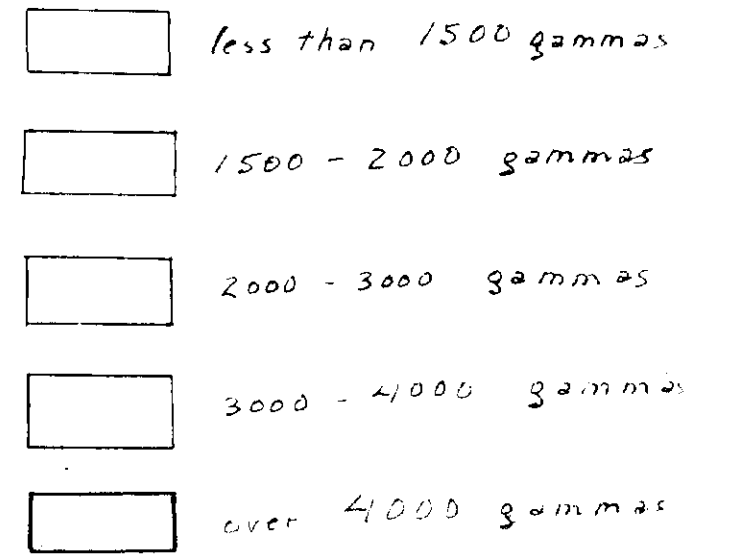 less than 1500 gammas
1500 - 2000 gammas
2000 - 3000 gammas
3000 - 4000 gammas
over 4000 gammas